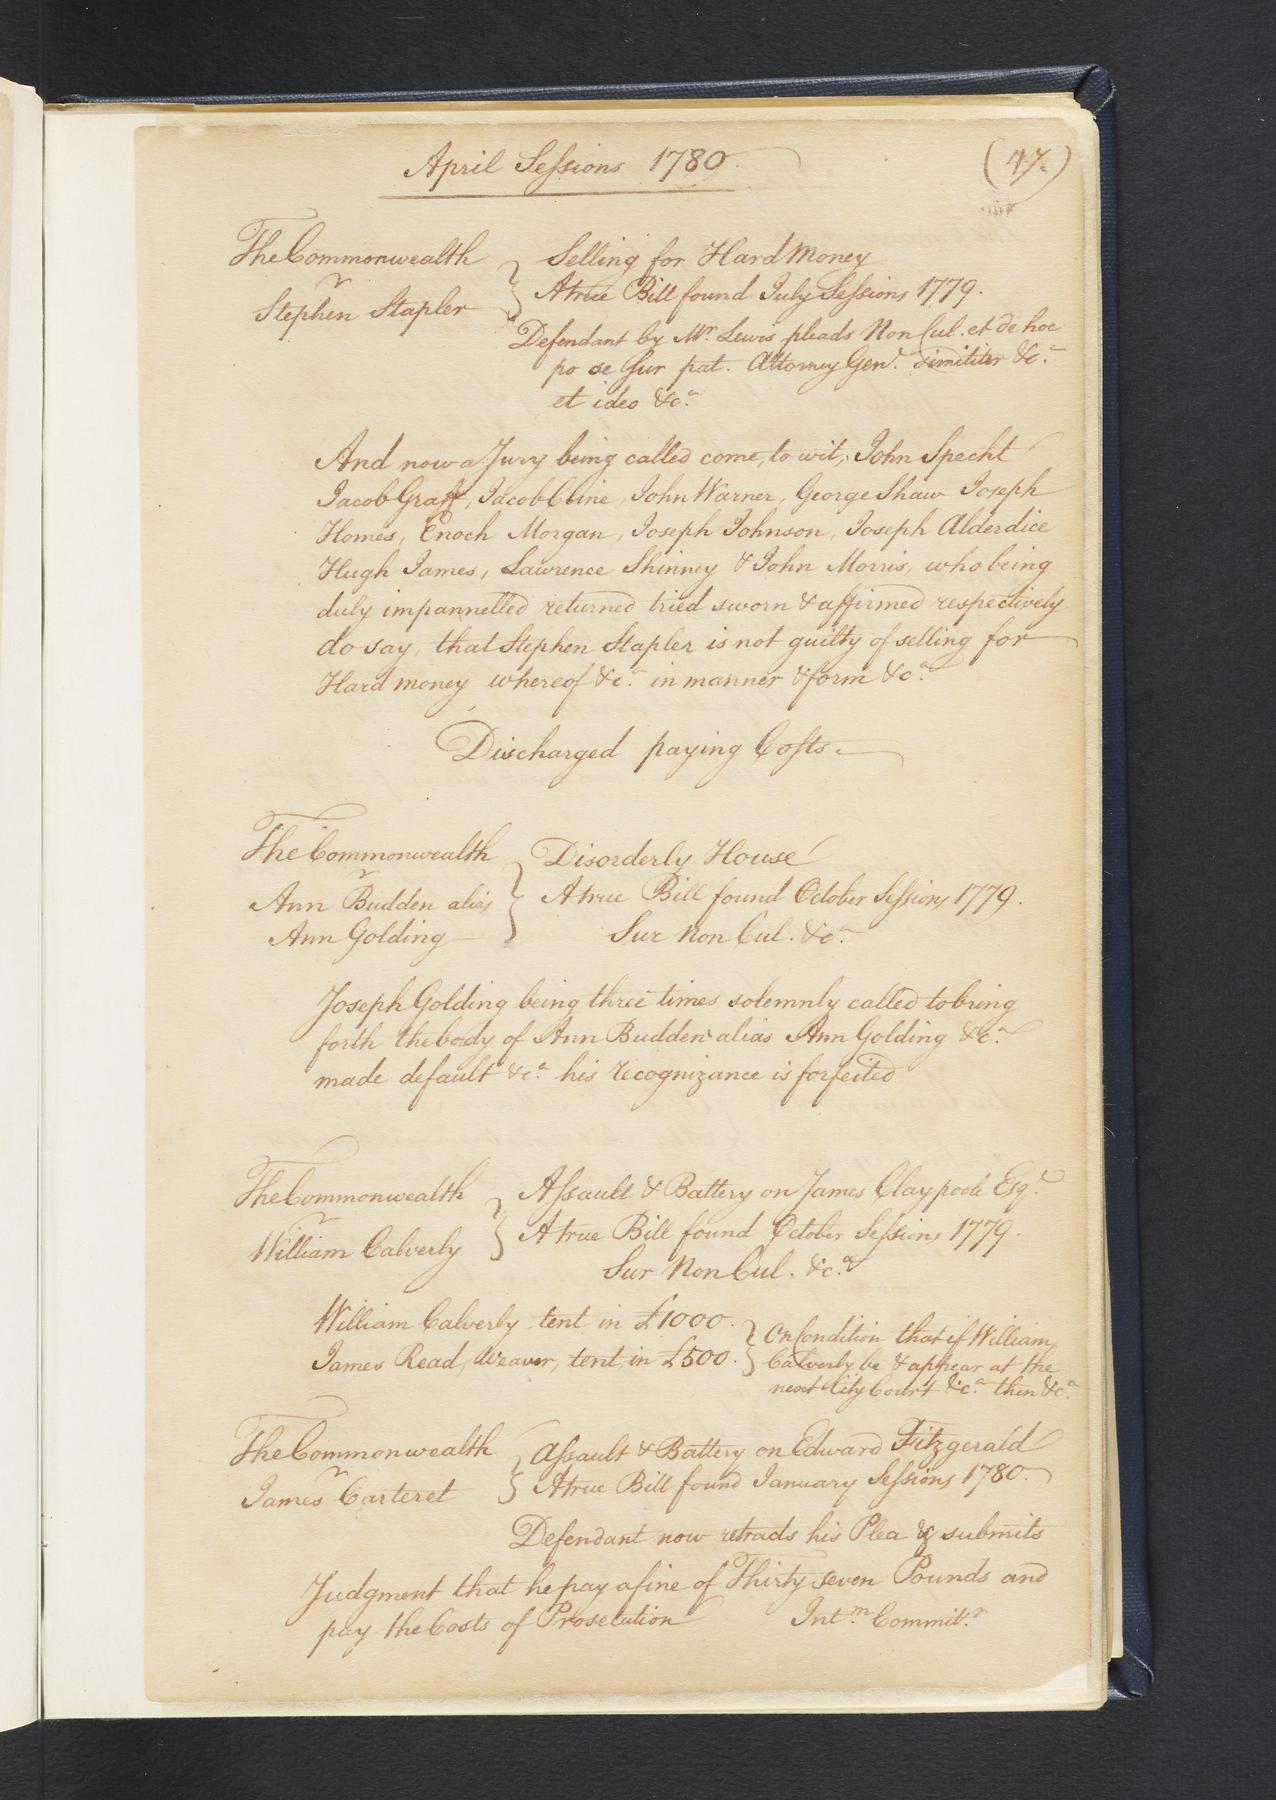 April Sessions 1780.
(47.)
The Commonwealth
v
Stephen Stapler
Selling for Hard Money
A true Bill found July Sessions 1779.
Defendant by Mr. Lewis pleads Non Cul. et de hoc
po se Sur pat. Attorney Genl. Similiter &ca.
et ideo &ca.
And now a Jury being called come, to wit, John Specht
Jacob Graff, Jacob Cline, John Warner, George Shaw Joseph
Homes, Enoch Morgan, Joseph Johnson, Joseph Alderdice
Hugh James, Lawrence Shinney & John Morris, who being
duly impannelled returned tried sworn & affirmed respectively
do say, that Stephen Stapler is not guilty of selling for
Hard money whereof &ca. in manner & form &ca.
Discharged paying Costs.
The Commonwealth
v
Ann Budden alias
Ann Golding
Disorderly House
A true Bill found October Sessions 1779.
Sur Non Cul. &ca.
Joseph Golding being three times solemnly called to bring
forth the body of Ann Budden alias Ann Golding &ca.
made default &ca. his recognizance is forfeited
The Commonwealth
v
William Calverly
Assault & Battery on James Claypoole Esqr.
A true Bill found October Sessions 1779.
Sur Non Cul. &ca.
William Calverly tent in £1000.
James Read, Weaver, tent in £500.
On Condition that if William
Calverly be & appear at the
next City Court &ca. then &ca.
The Commonwealth
v
James Carteret
Assault & Battery on Edward Fitzgerald
A true Bill found January Sessions 1780.
Defendant now retracts his Plea & submits
Judgment that he pay a fine of Thirty seven Pounds and
pay the Costs of Prosecution
Intm. Committr.